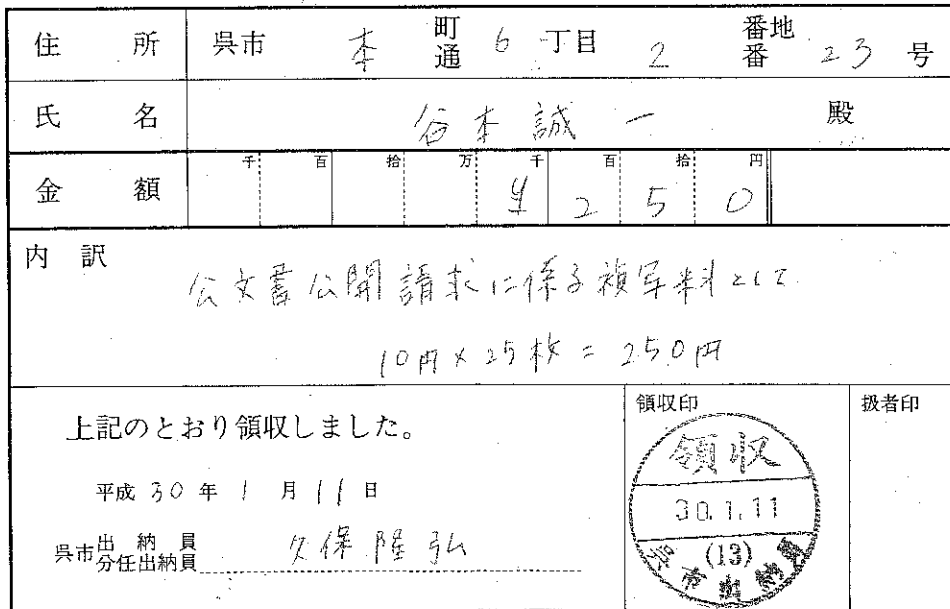 住所 呉市 本 町通 6 丁目 2 番地番 23 号
氏名 谷本誠一 殿
金額 千 百 拾 万 千 百 拾 円
¥ 2 5 0
内訳
公文書公開請求に係る複写料として
10円×25枚=250円
上記のとおり領収しました。
平成30年1月11日
呉市 出納員 分任出納員 久保隆弘
領収印
領収
30.1.11
(13)
呉市出納員
扱者印